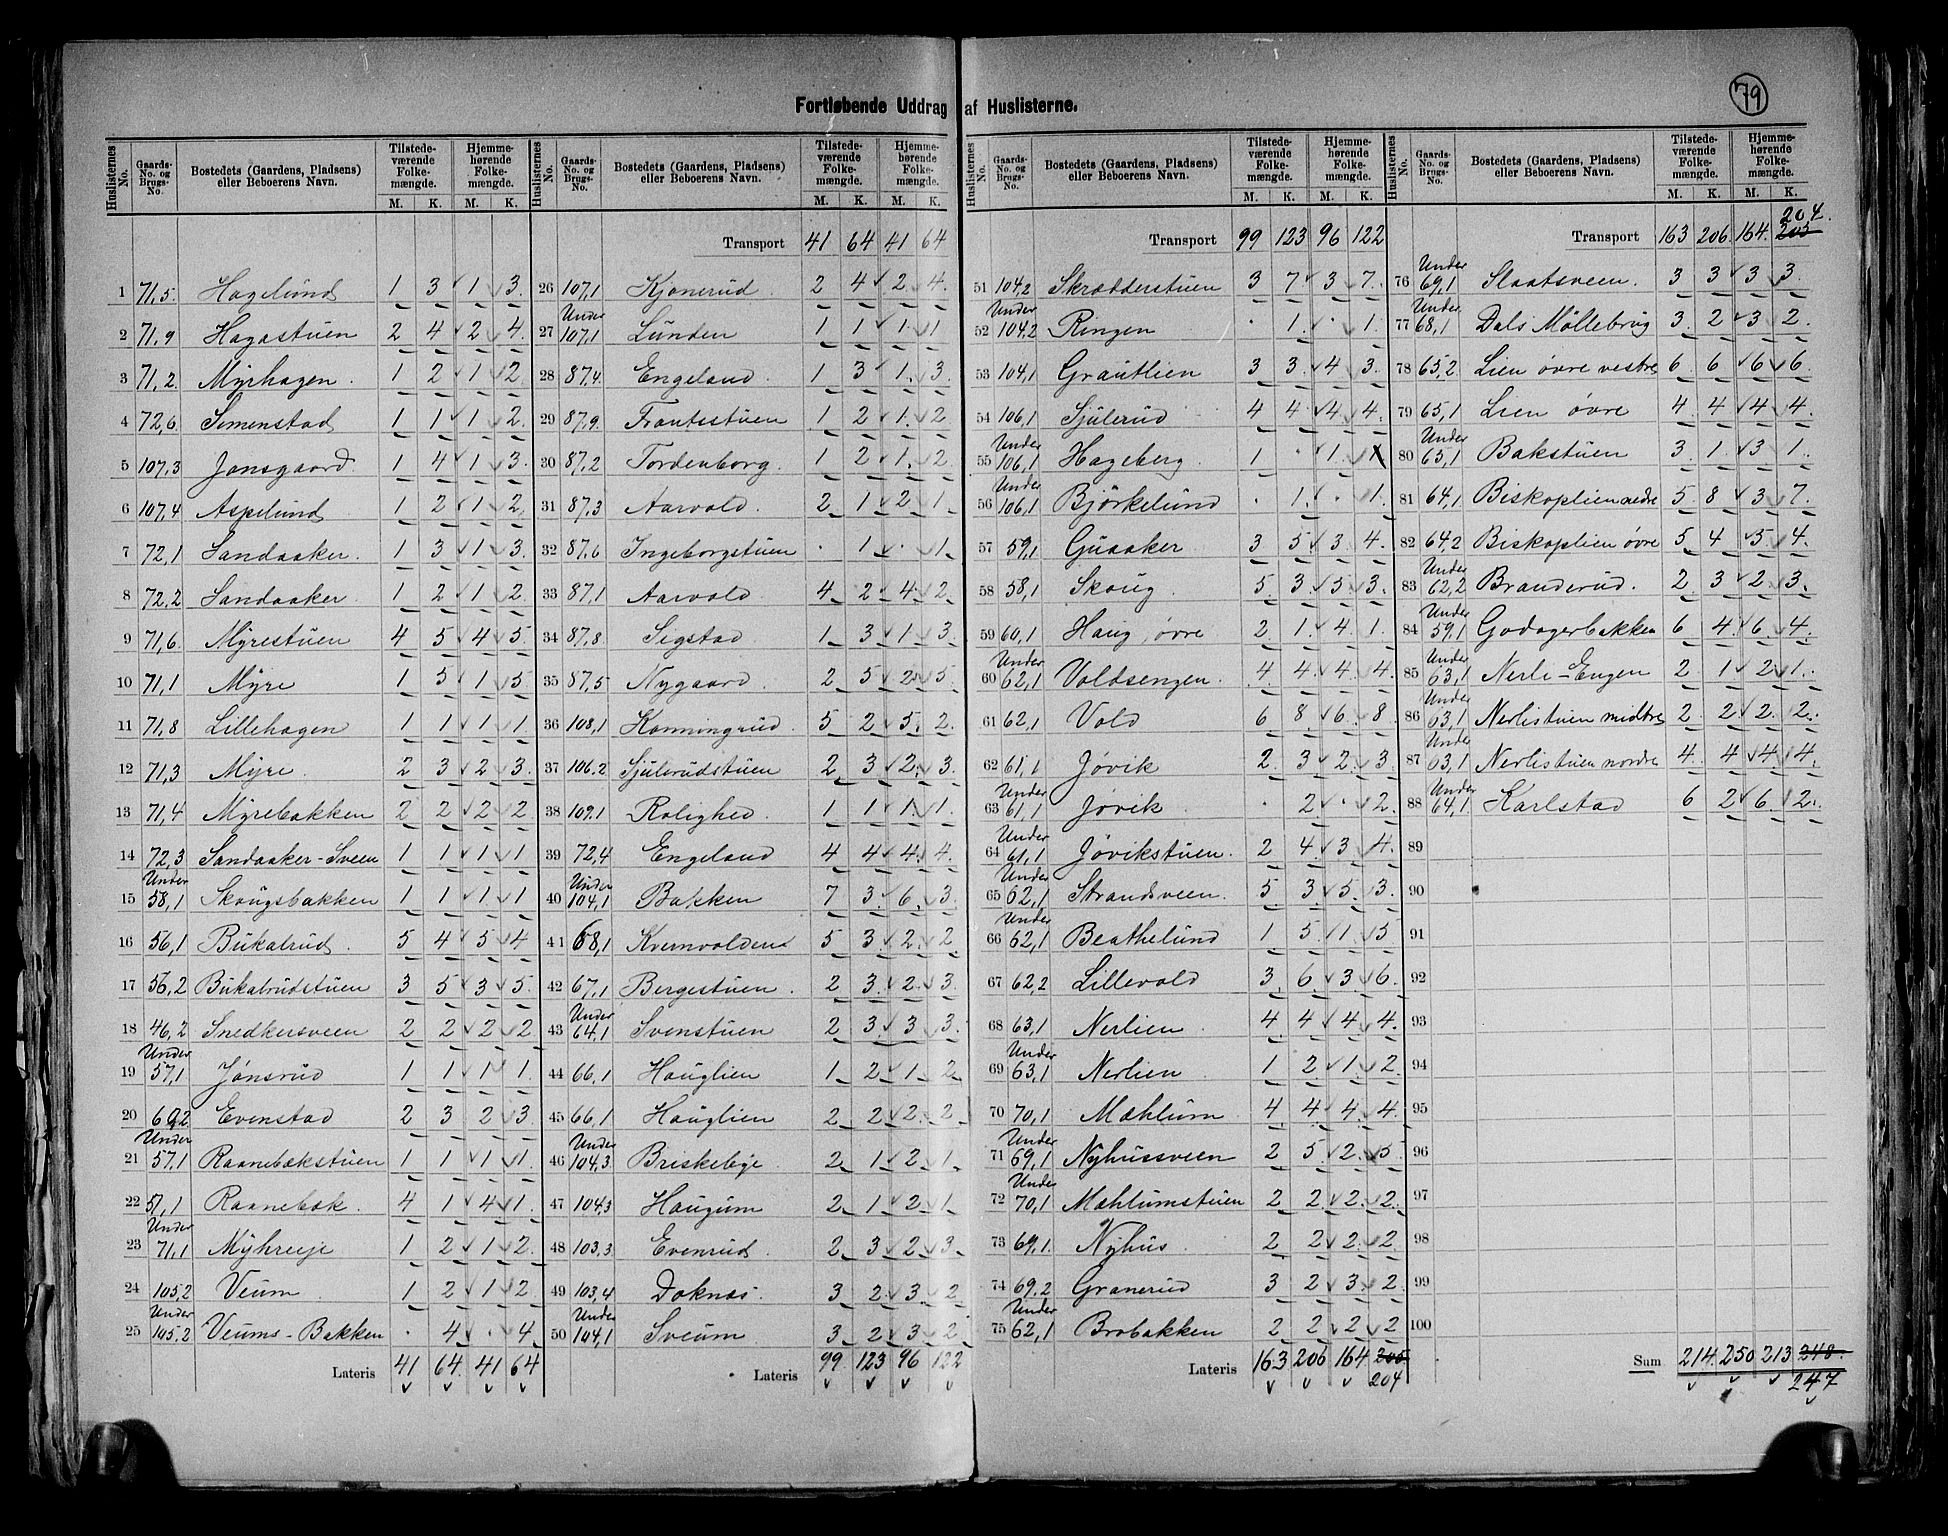 79
Fortløbende Uddrag af Huslisterne.
Huslisternes No. | Gaards-No. og Brugs-No. | Bostedets (Gaardens, Pladsens) eller Beboerens Navn. | Tilstedeværende Folkemængde. M. K. | Hjemmehørende Folkemængde. M. K.
1 71,5. Hagelund 1 3 1 3.
2 71,9 Hagastuen 2 4 2 4.
3 71,2. Myrhagen. 1 2 1 2
4 72,6 Semenstad 1 1 1 2.
5 107,3 Jonsgaard. 1 4 1 3.
6 107,4 Aspelund 1 2 1 2,
7 72,1 Sandaaker. 1 3 1 3.
8 72,2 Sandaaker. 1 2 1 2.
9 71,6. Myrestuen 4 5 4 5
10 71,1 Myre 1 5 1 5
11 71,8 Lillehagen 1 1 1 1
12 71,3 Myre. 2 3 2 3.
13 71,4 Myrebakken 2 2 2 2
14 72,3 Sandaaker-Sveen 1 1 1 1
15 Under 58,1 Skougsbakken 1 1 1 1
16 56,1 Bukalrud. 5 4 5 4
17 56,2 Bukalrudstuen 3 5 3 5.
18 46,2 Snedkersveen 2 2 2 2
19 Under 57,1 Jonsrud 1 1 1 1.
20 69,2 Evenstad 2 3 2 3.
21 Under 57,1 Raanebækstuen 1 1 1 1.
22 57,1 Raanebæk. 4 1 4 1.
23 Under 71,1 Myhreeje 1 2 1 2.
24 105,2 Veum. 1 2 1 2
25 Under 105,2 Veums-Bakken . 4 . 4
Lateris 41 64 41 64
Transport 41 64 41 64
26 107,1 Kjonerud. 2 4 2 4.
27 Under 107,1 Lunden 1 1 1 1
28 87,4. Engeland. 1 3 1. 3.
29 87,9. Trontestuen 1 2 1. 2
30 87,2 Tordenborg. 1 2 1. 2.
31 87,3 Aarvold. 2 1 2 1.
32 87,6 Ingeborgstuen . 1 . 1
33 87,1 Aarvold 4 2 4 2.
34 87,8. Segstad 1 3 1 3.
35 87,5 Nygaard. 2 5 2 5.
36 108,1 Konningrud. 5 2 5. 2.
37 106,2 Sjulerudstuen 2 3 2. 3.
38 109,1 Rolighed 1 1 1. 1.
39 72,4 Engeland 4 4 4. 4.
40 Under 104,1 Bakken 7 3 6 3.
41 68,1 Kvernvolden 5 3 2 2
42 67,1 Bergestuen. 2 3 2. 3
43 Under 64,1 Svenstuen 2 3 3 3.
44 66,1 Houglien 1 2 1 2
45 66,1 Houglien 2 2 2. 2
46 Under 104,3. Briskebye 2 1 2 1
47 104,3 Hougum 2 1 2 1.
48 103,3 Evenrud. 2 3 2 3.
49 103,4 Doknæs. 3 2 3. 2
50 Under 104,1 Sveum 3 2 3 2
Lateris 99 123 96 122
Transport 99 123 96 122
51 104,2 Skrædderstuen 3 7 3 7.
52 Under 104,2 Ringen . 1. . 1.
53 104,1 Grautlien 3 3. 4 3.
54 106,1 Sjulerud. 4 4 4 4.
55 Under 106,1 Hageberg. 1 . 1
56 Under 106,1 Bjørkelund . 1 . 1.
57 59,1 Guaaker 3 5 3. 4.
58 58,1 Skoug. 5. 3 5 3.
59 60,1 Houg øvre 2 1. 4. 1.
60 Under 62,1 Voldsengen. 4 4. 4. 4
61 62,1 Vold 6 8 6. 8.
62 61,1 Jøvik 2. 3 2. 3
63 Under 61,1 Jøvik . 2 . 2.
64 Under 61,1 Jøvikstuen. 2 4 3 4.
65 Under 62,1 Strandsveen. 5. 3 5. 3.
66 Under 62,1 Beathelund 1 5. 1 5
67 62,2 Lillevold 3. 6 3 6.
68 63,1 Nerlien 4 4 4 4.
69 Under 63,1 Nerlien. 1 2 1 2.
70 70,1 Mæhlum. 4 4 4. 4.
71 Under 69,1 Nyhussveen 2 5 2. 5.
72 Under 70,1 Mæhlumstuen 2 2 2. 2.
73 69,1. Nyhus. 2 2 2. 2.
74 69,2 Granerud 3 2 3. 2.
75 Under 62,1 Brobakken 2 2 2 2
Lateris 163 206 164 205
204
Transport 163 206. 164. 205 204.
76 Under 69,1 Slaatsveen. 3 3 3 3.
77 Under 68,1 Dals Møllebrug 3. 2 3 2.
78 65,2 Lien øvre vestre 6 6 6 6.
79 65,1 Lien øvre 4 4 4 4.
80 Under 65,1 Bakstuen 3. 1. 3 1.
81 64,1 Biskoplien nedre 5. 8 3 7.
82 64,2 Biskoplien øvre 5 4 5 4.
83 Under 62,2 Branderud. 2 3 2 3.
84 Under 59,1 Godagerbakken 6 4. 6. 4.
85 Under 63,1 Nerli-Engen 2 1 2 1.
86 Under 63,1 Nerlistuen midtre 2. 2 2. 2.
87 Under 63,1 Nerlistuen nordre 4. 4 4. 4
88 Under 64,1 Karlstad 6 2 6. 2.
89
90
91
92
93
94
95
96
97
98
99
100
Sum 214. 250 213 248.
247